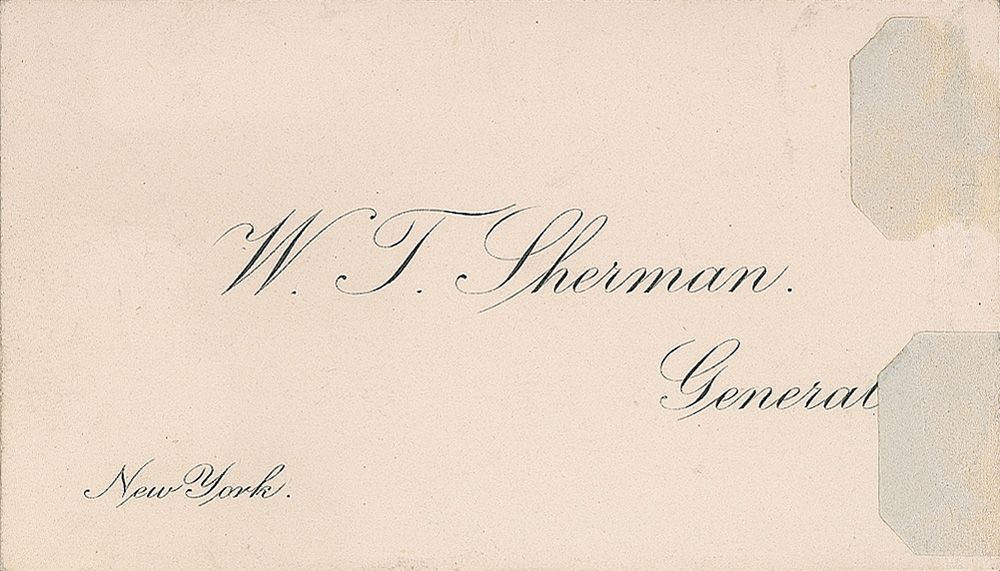 W. T. Sherman.
General
New York.